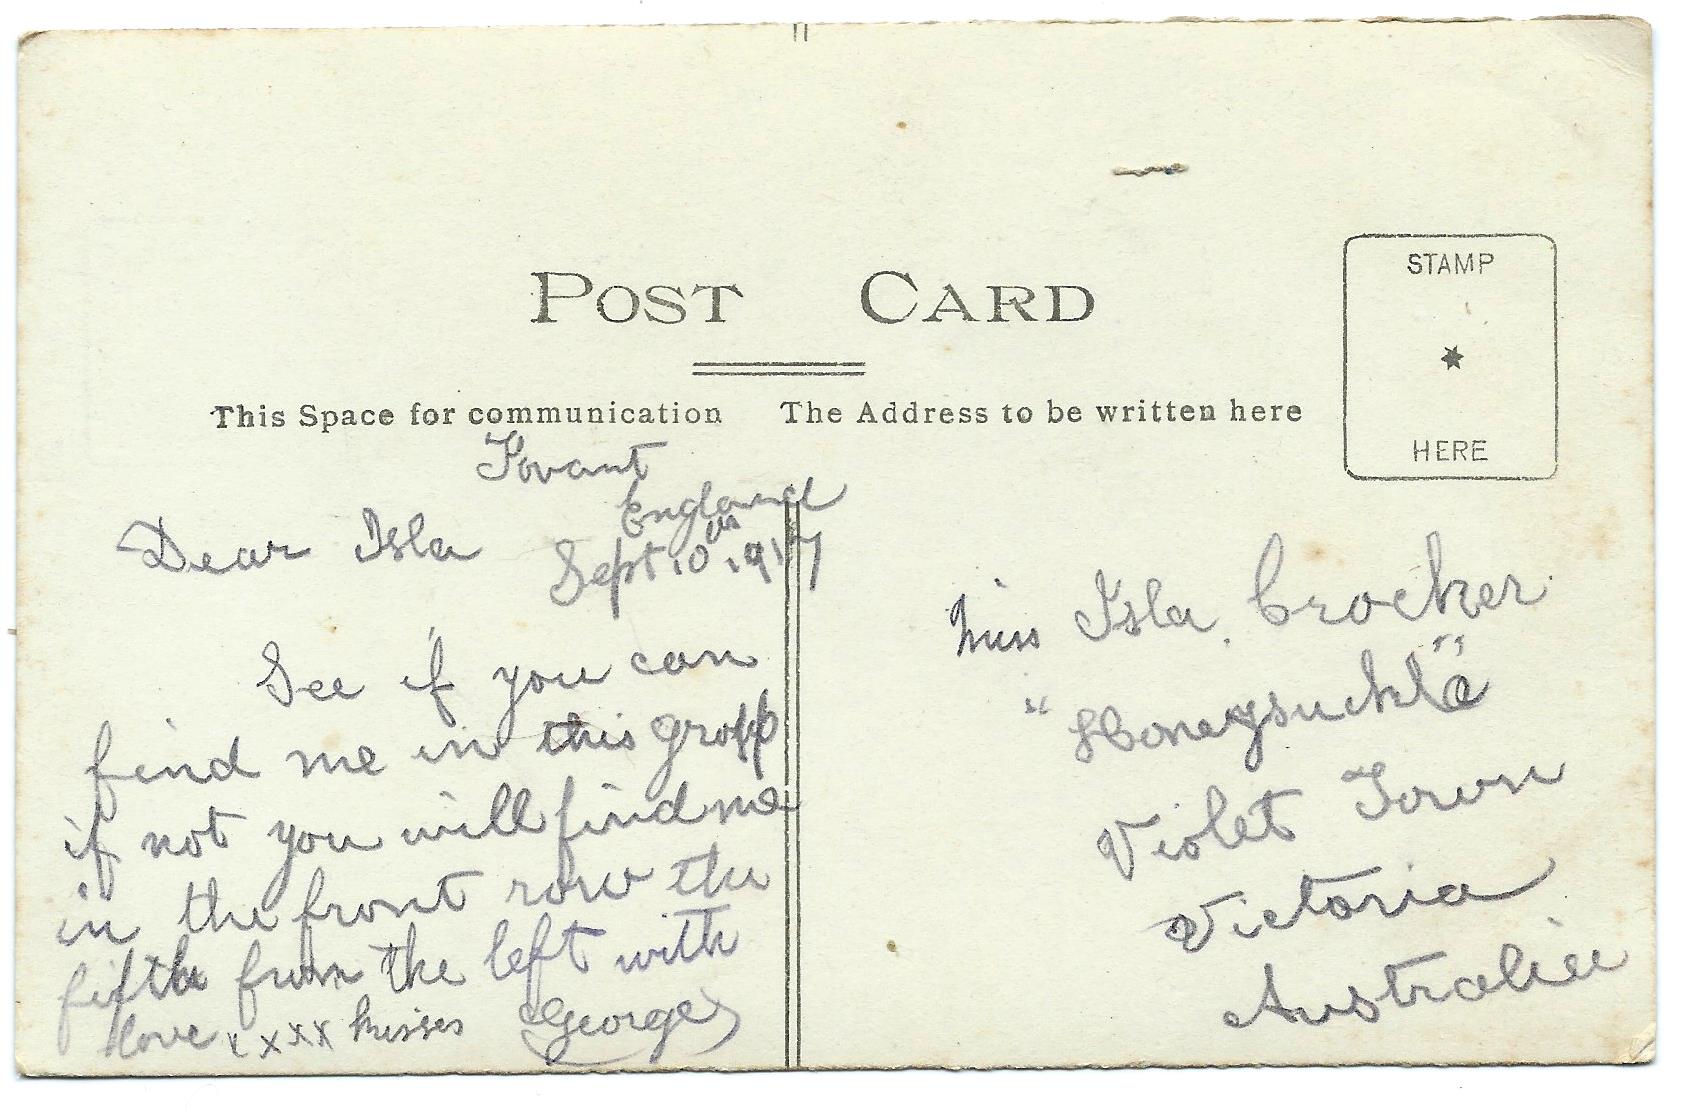 POST CARD
STAMP
HERE
This Space for communication
The Address to be written here
Fovant
England
Sept 10th 1917
Dear Isla
See if you can
find me in this group
if not you will find me
in the front row the
fifth from the left with
love x x x x kisses George
Miss Isla Crocker
"Honeysuckle"
Violet Town
Victoria
Australia